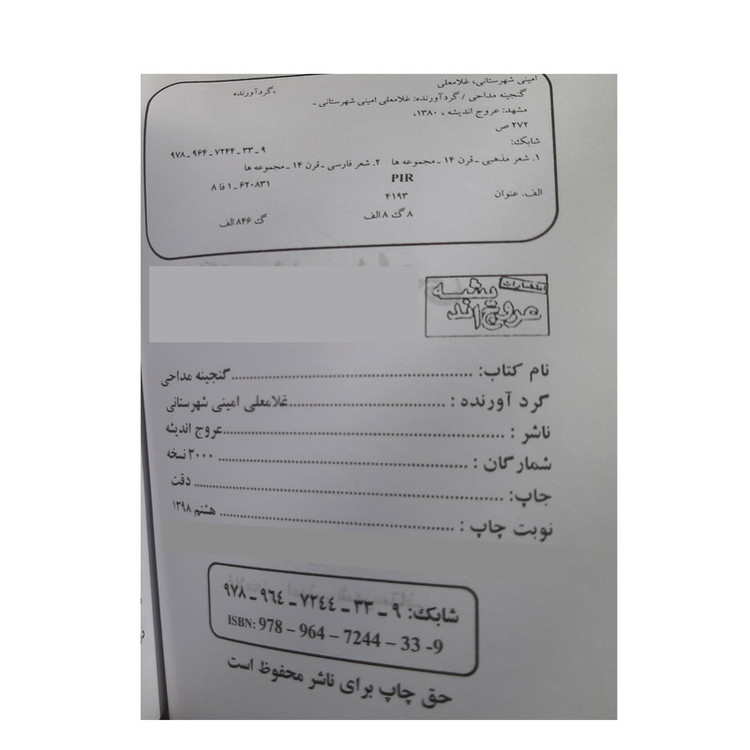 امینی شهرستانی، غلامعلی
گنجینه مداحی / گردآورنده: غلامعلی امینی شهرستانی ـ ،گردآورنده
مشهد: عروج اندیشه ، ۱۳۸۰،
۲۷۲ ص
شابک: ۹ ـ ۳۳ ـ ۷۲۴۴ ـ ۹۶۴ ـ ۹۷۸
۱. شعر مذهبی ـ قرن ۱۴ ـ مجموعه ها ۲. شعر فارسی ـ قرن ۱۴ ـ مجموعه ها
PIR
الف. عنوان ۴۱۹۳ ۶۲۰۸۳۱ـ ۱ فا ۸
۸ گ ۸ الف گ ۸۴۶ الف
انتشارات
عروج اندیشه
نام کتاب: گنجینه مداحی
گرد آورنده : غلامعلی امینی شهرستانی
ناشر : عروج اندیشه
شمارگان : ۳۰۰۰ نسخه
چاپ: دقت
نوبت چاپ : هشتم ۱۳۹۸
شابک: ۹ ـ ۳۳ ـ ۷۲۴۴ ـ ۹۶۴ ـ ۹۷۸
ISBN: 978 – 964 – 7244 – 33 -9
حق چاپ برای ناشر محفوظ است